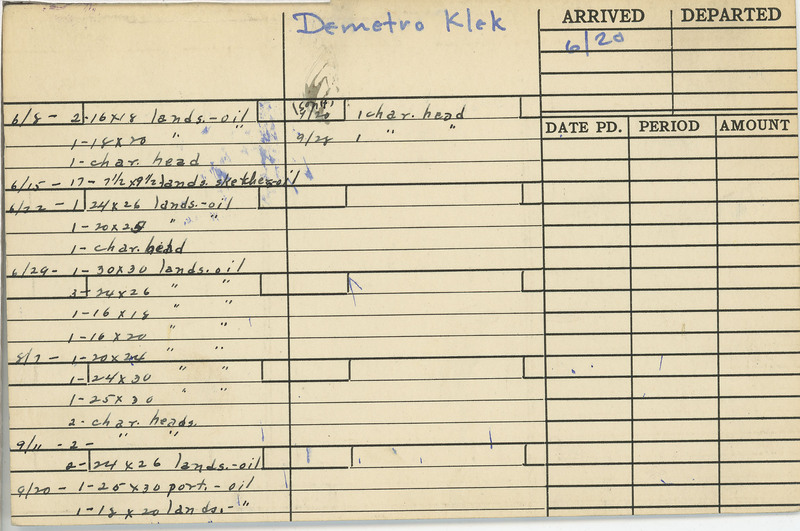 Demetro Klek
ARRIVED DEPARTED
6/20
DATE PD. PERIOD AMOUNT
6/8 - 2-16x18 lands.-oil
1-18x20 " "
1-char. head
6/15-17-7½x9½ lands. sketches oil
6/22-1 24x26 lands.-oil
1-20x25 " "
1-char. head
6/29-1-30x30 lands. oil
3-24x26 " "
1-16x18 " "
1-16x20 " "
8/7-1-20x24 " "
1-24x30 " "
1-25x30 " "
2-char. heads.
9/11-2- " "
2-24x26 lands.-oil
9/20-1-25x30 port.-oil
1-18x20 lands.-"
(cont)
9/20 1 char. head
9/28 1 " "